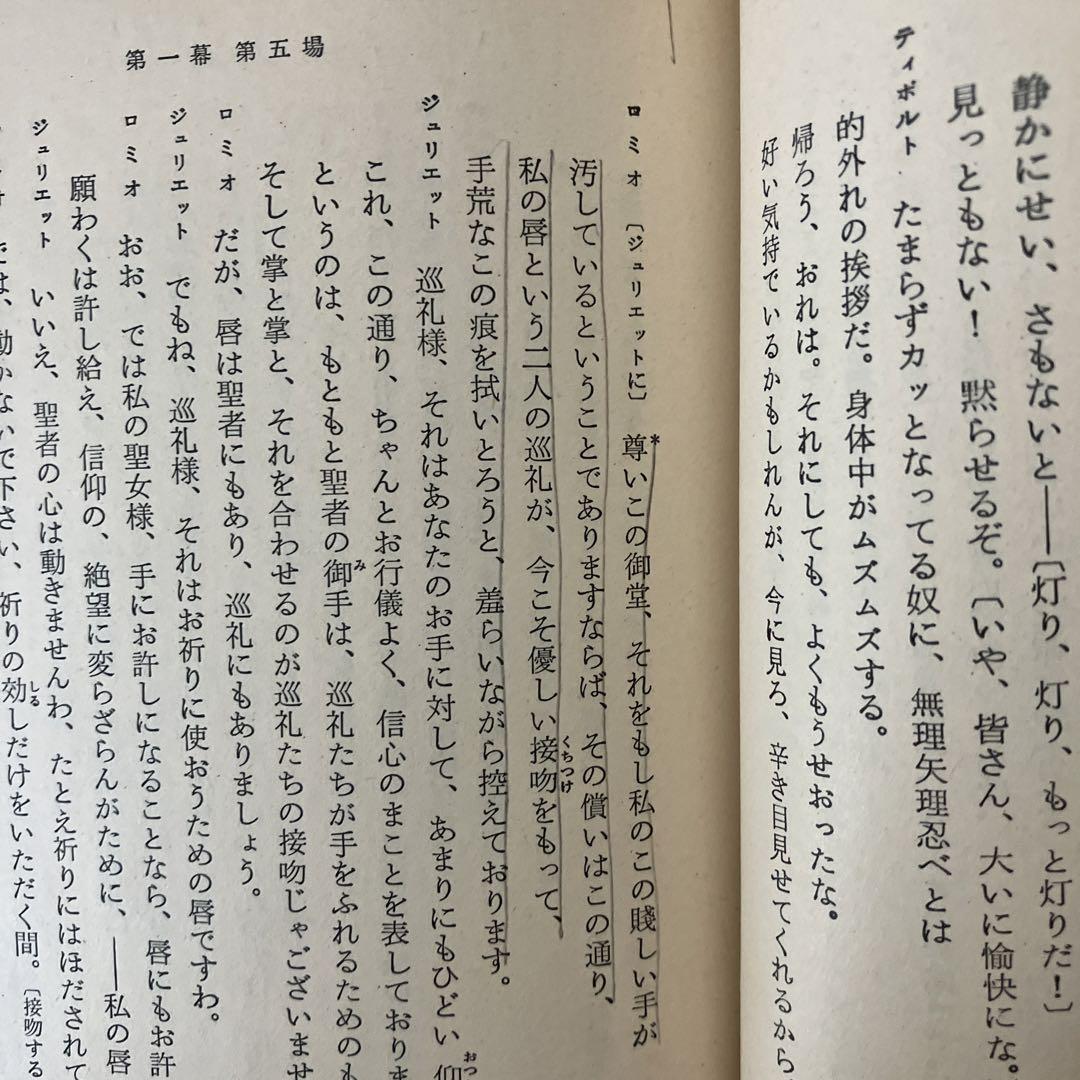 静かにせい、さもないと――〔灯り、灯り、もっと灯りだ！〕
見っともない！　黙らせるぞ。〔いや、皆さん、大いに愉快にな。
ティボルト　たまらずカッとなってる奴に、無理矢理忍べとは
的外れの挨拶だ。身体中がムズムズする。
帰ろう、おれは。それにしても、よくもうせおったな。
好い気持でいるかもしれんが、今に見ろ、辛き目見せてくれるから
第一幕 第五場
ロミオ　〔ジュリエットに〕　尊いこの御堂、それをもし私のこの賤しい手が
汚しているということでありますならば、その償いはこの通り、
私の唇という二人の巡礼が、今こそ優しい接吻をもって、
手荒なこの痕を拭いとろうと、羞らいながら控えております。
ジュリエット　巡礼様、それはあなたのお手に対して、あまりにもひどい仰
これ、この通り、ちゃんとお行儀よく、信心のまことを表しており
というのは、もともと聖者の御手は、巡礼たちが手をふれるためのも
そして掌と掌と、それを合わせるのが巡礼たちの接吻じゃございませ
ロミオ　だが、唇は聖者にもあり、巡礼にもありましょう。
ジュリエット　でもね、巡礼様、それはお祈りに使おうための唇ですわ。
ロミオ　おお、では私の聖女様、手にお許しになることなら、唇にもお許
願わくは許し給え、信仰の、絶望に変らざらんがために、――私の唇
ジュリエット　いいえ、聖者の心は動きませんわ、たとえ祈りにはほだされて
では、動かないで下さい、祈りの効しだけをいただく間。〔接吻する